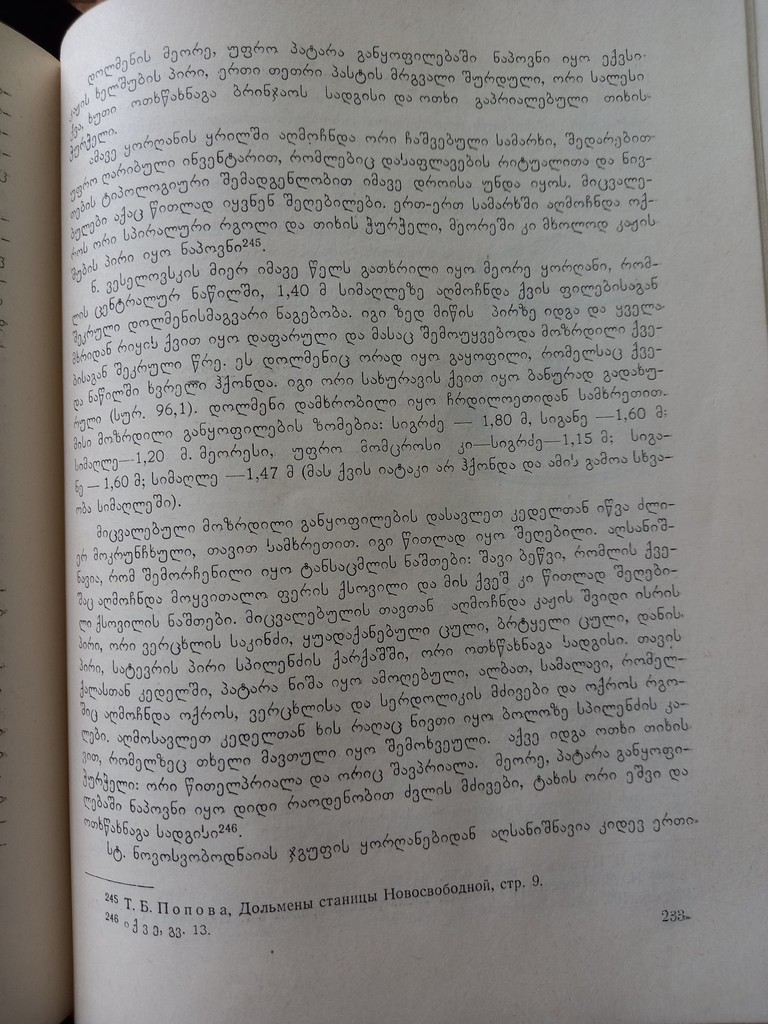 დოლმენის მეორე, უფრო პატარა განყოფილებაში ნაპოვნი იყო ექვსი
კაჟის ხელშუბის პირი, ერთი თეთრი პასტის მრგვალი შურდული, ორი სალესი
ქვა, ხუთი ოთხწახნაგა ბრინჯაოს სადგისი და ოთხი გაპრიალებული თიხის
ჭურჭელი.
ამავე ყორღანის ყრილში აღმოჩნდა ორი ჩაშვებული სამარხი, შედარებით
უფრო ღარიბული ინვენტარით, რომლებიც დასაფლავების რიტუალითა და ნივ-
თების ტიპოლოგიური შემადგენლობით იმავე დროისა უნდა იყოს. მიცვალე-
ბულები აქაც წითლად იყვნენ შეღებილები. ერთ-ერთ სამარხში აღმოჩნდა ოქ-
როს ორი სპირალური რგოლი და თიხის ჭურჭელი, მეორეში კი მხოლოდ კაჟის
შუბის პირი იყო ნაპოვნი²⁴⁵.
ნ. ვესელოვსკის მიერ იმავე წელს გათხრილი იყო მეორე ყორღანი, რომ-
ლის ცენტრალურ ნაწილში, 1,40 მ სიმაღლეზე აღმოჩნდა ქვის ფილებისაგან
შეკრული დოლმენისმაგვარი ნაგებობა. იგი ზედ მიწის პირზე იდგა და ყველა
მხრიდან რიყის ქვით იყო დაფარული და მასაც შემოუყვებოდა მოზრდილი ქვე-
ბისაგან შეკრული წრე. ეს დოლმენიც ორად იყო გაყოფილი, რომელსაც ქვე-
და ნაწილში ხვრელი ჰქონდა. იგი ორი სახურავის ქვით იყო ბანურად გადახუ-
რული (სურ. 96,1). დოლმენი დამხრობილი იყო ჩრდილოეთიდან სამხრეთით.
მისი მოზრდილი განყოფილების ზომებია: სიგრძე — 1,80 მ, სიგანე —1,60 მ:
სიმაღლე—1,20 მ. მეორესი, უფრო მომცროსი კი—სიგრძე—1,15 მ; სიგა-
ნე — 1,60 მ; სიმაღლე —1,47 მ (მას ქვის იატაკი არ ჰქონდა და ამის გამოა სხვა-
ობა სიმაღლეში).
მიცვალებული მოზრდილი განყოფილების დასავლეთ კედელთან იწვა ძლი-
ერ მოკრუნჩხული, თავით სამხრეთით. იგი წითლად იყო შეღებილი. აღსანიშ-
ნავია, რომ შემორჩენილი იყო ტანსაცმლის ნაშთები: შავი ბეწვი, რომლის ქვე-
შაც აღმოჩნდა მოყვითალო ფერის ქსოვილი და მის ქვეშ კი წითლად შეღები-
ლი ქსოვილის ნაშთები. მიცვალებულის თავთან აღმოჩნდა კაჟის შვიდი ისრის
პირი, ორი ვერცხლის საკინძი, ყუადაქანებული ცული, ბრტყელი ცული, დანის
პირი, სატევრის პირი სპილენძის ქარქაშში, ორი ოთხწახნაგა სადგისი. თავის
ქალასთან კედელში, პატარა ნიშა იყო ამოღებული, ალბათ, სამალავი, რომელ-
შიც აღმოჩნდა ოქროს, ვერცხლისა და სერდოლიკის მძივები და ოქროს რგო-
ლები. აღმოსავლეთ კედელთან ხის რაღაც ნივთი იყო ბოლოზე სპილენძის კა-
ვით, რომელზეც თხელი მავთული იყო შემოხვეული. აქვე იდგა ოთხი თიხის
ჭურჭელი: ორი წითელპრიალა და ორიც შავპრიალა. მეორე, პატარა განყოფი-
ლებაში ნაპოვნი იყო დიდი რაოდენობით ძვლის მძივები, ტახის ორი ეშვი და
ოთხწახნაგა სადგისი²⁴⁶.
სტ. ნოვოსვობოდნაიას ჯგუფის ყორღანებიდან აღსანიშნავია კიდევ ერთი
²⁴⁵ Т. Б. Попова, Дольмены станицы Новосвободной, стр. 9.
²⁴⁶ იქვე, გვ. 13.
233